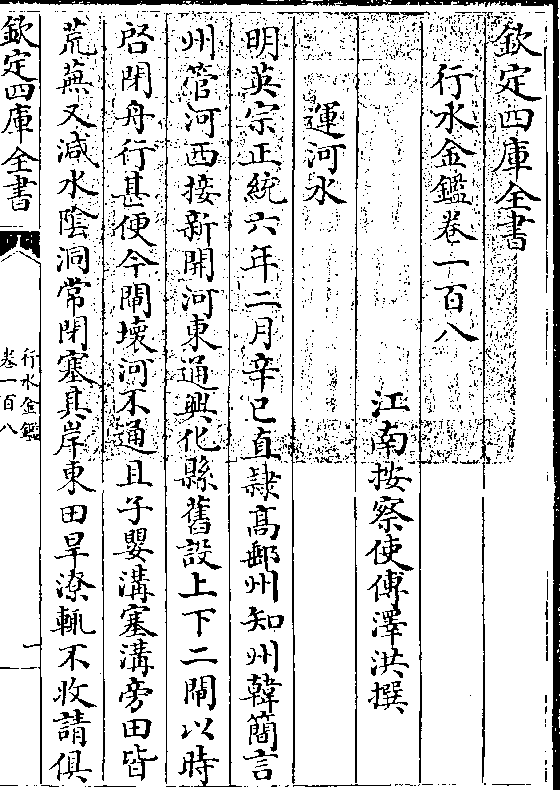 欽定四庫全書
行水金鑑卷一百八
江南按察使傅澤洪撰
運河水
明英宗正統六年二月辛巳直隸髙郵州知州韓簡言
州管河西接新開河東通興化縣舊設上下二閘以時
啓閉舟行甚便今閘壊河不通且子嬰溝塞溝旁田皆
荒蕪又減水陰洞常閉塞其岸東田旱潦輒不收請俱
欽定四庫全書
行水金鑑
卷一百八
一